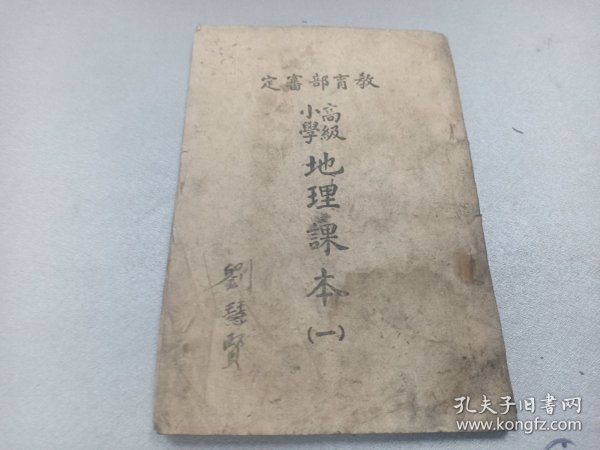 教育部審定
高級
小學
地理課本
(一)
劉慧賢
孔夫子旧书网
www.kongfz.com